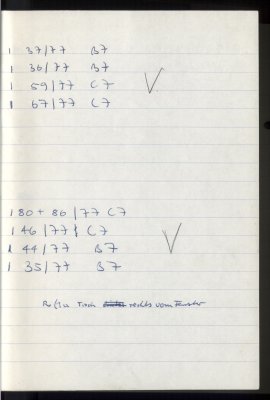 1 37/77 B7
1 36/77 B7
1 59/77 C7
1 67/77 C7
180 + 86/77 C7
1 46/77 C7
1 44/77 B7
1 35/77 B7
Tisch rechts vom Fenster